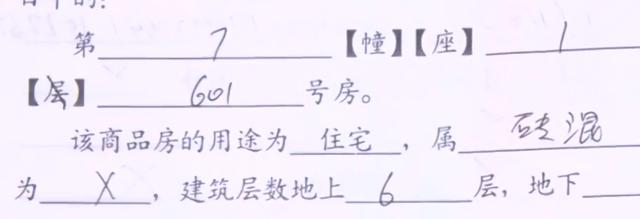 第 7 【幢】【座】 1
【层】 601 号房。
该商品房的用途为 住宅 ，属 砖混
为 X ，建筑层数地上 6 层，地下